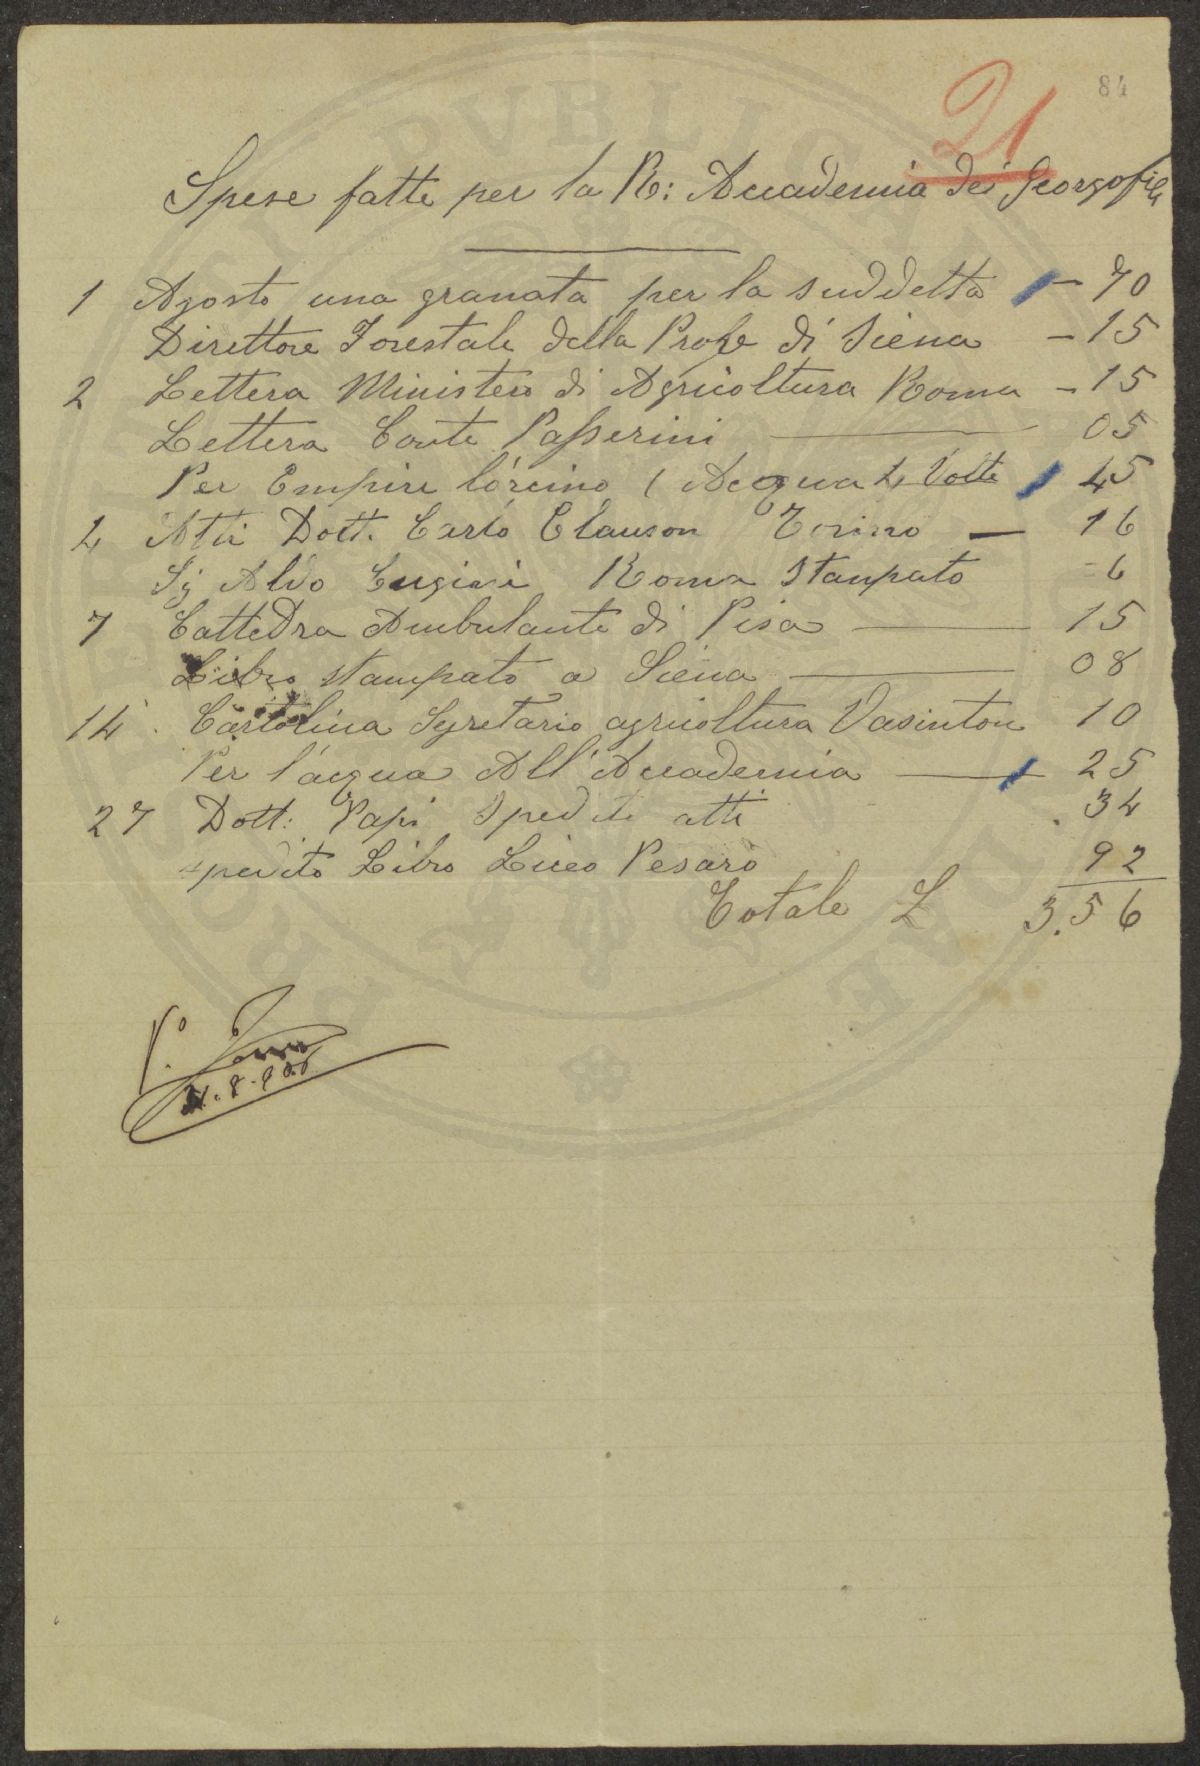 84
21
Spese fatte per la R: Accademia dei Georgofili
1 Agosto una granata per la suddetta - 70
Direttore Forestale della Prove di Siena - 15
2 Lettera Ministero di Agricoltura Roma - 15
Lettera Conte Passerini 05
Per Empire l'orcino ( Acqua 4 Volte 45
4 Atti Dott. Carlo Clauson Torino - 16
Sg Aldo Roma Stanpato - 6
7 Cattedra Ambulante di Pisa 15
Libro stampato a Siena 08
14 Cartolina Sgretario agricoltura Vasinton 10
Per l'acqua All'Accademia 25
27 Dott: Papi Spedito atti 34
spedito Libro Liceo Pesaro 92
Totale L 3.56
V.o
31.8.906